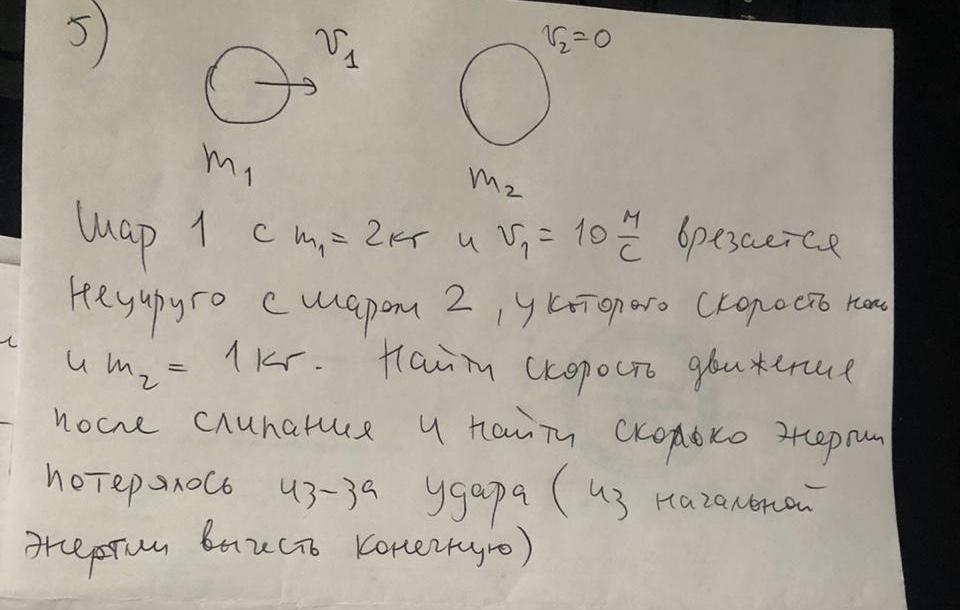 5)
V₁
V₂=0
m₁
m₂
Шар 1 с m₁ = 2кг и V₁ = 10 м/с врезается
неупруго с шаром 2, у которого скорость ноль
и m₂ = 1 кг. Найти скорость движения
после слипания и найти сколько энергии
потерялось из-за удара (из начальной
энергии вычесть конечную)